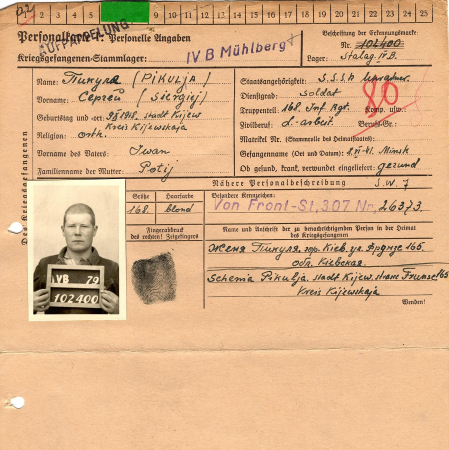 2 3 4 5 6 7 8 9 10 11 12 13 14 15 16 17 18 19 20 21 22 23 24 25
Personalkarte I: Personelle Angaben
Kriegsgefangenen-Stammlager:
IV B Mühlberg
Beschriftung der Erkennungsmarke
Nr. 102400
Lager: Stalag IV B.
Des Kriegsgefangenen
Name: Пикуля (PIKULJA)
Vorname: Сергей (Siergiej)
Geburtstag und -ort: 1918. Stadt Kijew
Kreis Kijewskaja
Religion: orth.
Vorname des Vaters: Iwan
Familienname der Mutter: Potij
Staatsangehörigkeit: S.S.S.R.
Dienstgrad: Soldat
Truppenteil: 168. Inf. Rgt. Komp. usw.:
80
Zivilberuf: Berufs-Gr.:
Matrikel Nr. (Stammrolle des Heimatstaates):
Gefangennahme (Ort und Datum): Minsk
Ob gesund, krank, verwundet eingeliefert: gesund
Nähere Personalbeschreibung
S.W.7
Größe Haarfarbe
168. blond
Besondere Kennzeichen:
Von Front-St. 307 Nr. 26373
Fingerabdruck
des rechten! Zeigefingers
Name und Anschrift der zu benachrichtigenden Person in der Heimat
des Kriegsgefangenen
Женя Пикуля, гор. Киев. ул. Фрунзе 165
обл. Киевская.
Schenia Pikulja. Stadt Kijew. Frunse 165
Kreis Kijewskaja
Wenden!
IVB 79
102400